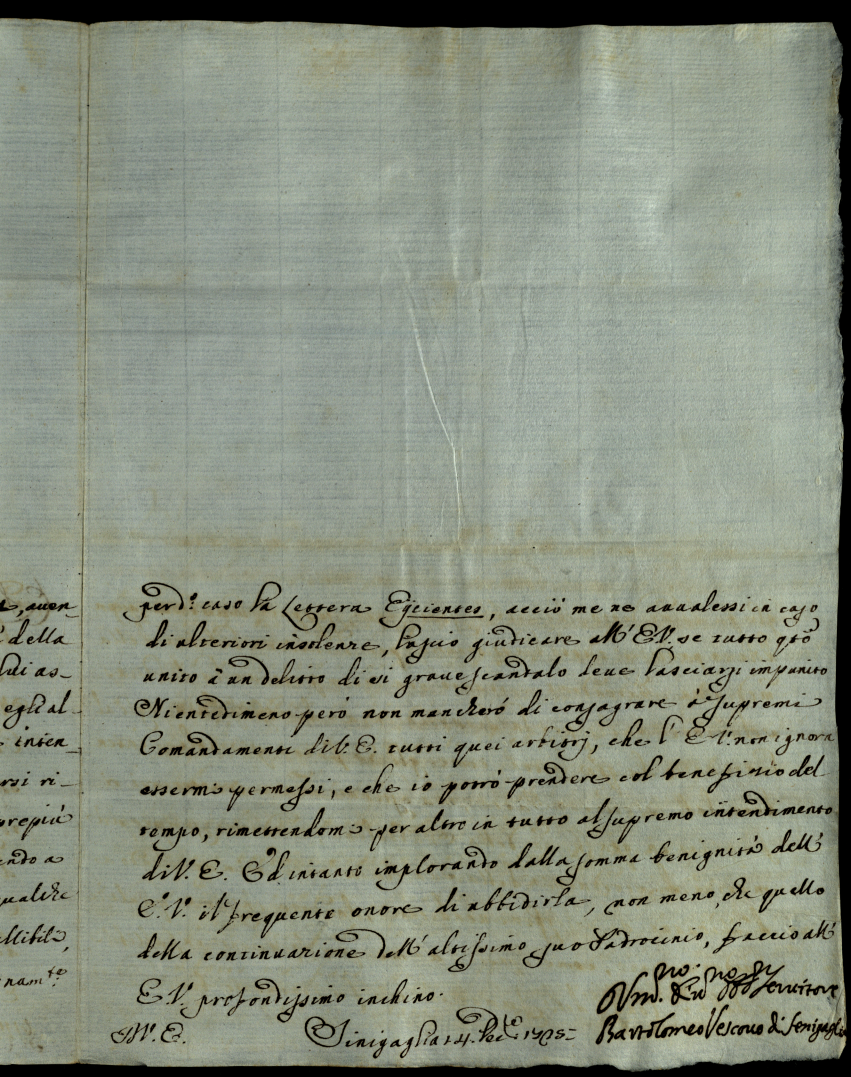 a, auen-
della
lui as-
egli al-
inten-
arsi ri-
prepiù
endo a
qualche
allibile,
namte
perd.o caso la Lettera Ejicientes, acciò me ne avvalessi in caso
di alteriori insolenze, lascio giudicare all'E.V. se tutto qto
unito à un delitto di si grave scandalo deve lasciarsi impunito
Nientedimeno però non mancherò di consagrare à Supremi
Comandamenti di V. E. tutti quei arbitrj, che l'E.V. non ignora
essermi permessi, e che io potrò prendere col benefizio del
tempo, rimettendomi per altro in tutto al supremo intendimento
di V. E. Ed intanto implorando dalla somma benignità dell'
E. V. il frequente onore di ubbidirla, non meno, che quello
della continuazione dell'altissimo suo Padrocinio, faccio all'
E. V. profondissimo inchino.
Servitore
Sinigaglia 14. 1725
Bartolomeo Vescovo di Senigaglia